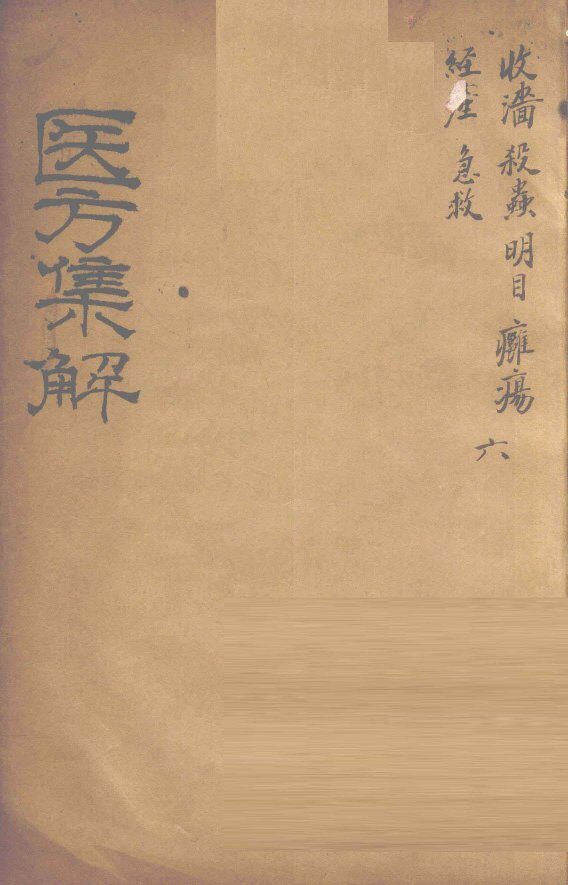 收濇 殺蟲 明目 癰瘍
經產 急救
六
医方集解